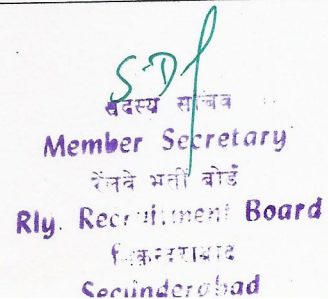 SD/
सदस्य सचिव
Member Secretary
रेलवे भर्ती बोर्ड
Rly. Recruitment Board
सिकन्दराबाद
Secunderabad